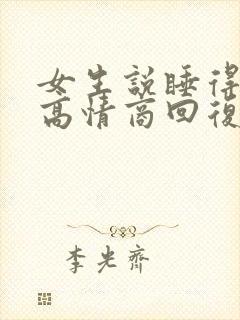 女生説睡得
高情商回復
李光齊